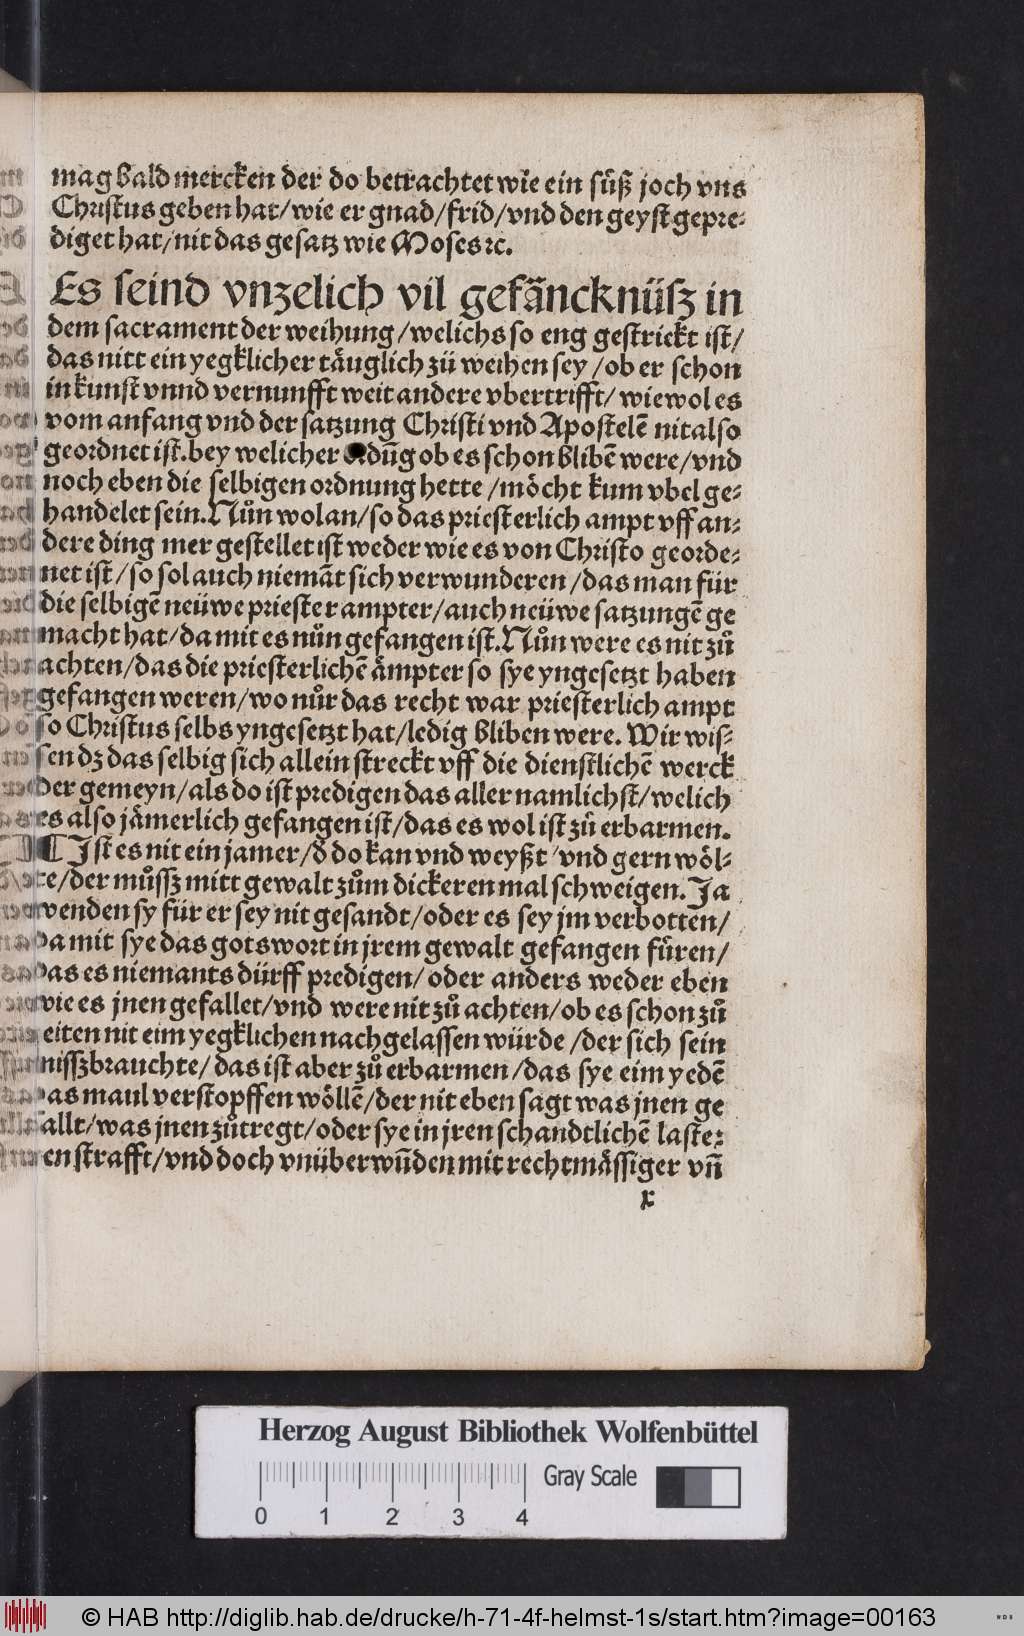 mag bald mercken der do betrachtet wie ein süß joch vns
Christus geben hat/wie er gnad/frid/vnd den geyst gepre-
diget hat/nit das gesatz wie Moses ꝛc.
Es seind vnzelich vil gefäncknüsz in
dem sacrament der weihung/welichs so eng gestrickt ist/
das nitt ein yegklicher täuglich zü weihen sey/ob er schon
in kunst vnnd vernunfft weit andere vbertrifft/wiewol es
vom anfang vnd der satzung Christi vnd Apostelē nit also
geordnet ist.bey welicher dūg ob es schon blibē were/vnd
noch eben die selbigen ordnung hette/möcht kum vbel ge-
handelet sein.Nůn wolan/so das priesterlich ampt vff an-
dere ding mer gestellet ist weder wie es von Christo georde-
net ist/so sol auch niemāt sich verwunderen/das man für
die selbigē neüwe priester ampter/auch neüwe satzungē ge
macht hat/da mit es nůn gefangen ist.Nůn were es nit zů
achten/das die priesterlichē ämpter so sye yngesetzt haben
gefangen weren/wo nůr das recht war priesterlich ampt
so Christus selbs yngesetzt hat/ledig bliben were. Wir wis-
sen dz das selbig sich allein streckt vff die dienstlichē werck
der gemeyn/als do ist predigen das aller namlichst/welich
es also jämerlich gefangen ist/das es wol ist zů erbarmen.
¶ Ist es nit ein jamer/ð do kan vnd weyßt vnd gern wöl-
te/der můssz mitt gewalt zům dickeren mal schweigen. Ja
wenden sy für er sey nit gesandt/oder es sey jm verbotten/
da mit sye das gotswort in jrem gewalt gefangen füren/
das es niemants dürff predigen/oder anders weder eben
wie es jnen gefallet/vnd were nit zů achten/ob es schon zů
eiten nit eim yegklichen nachgelassen würde/der sich sein
nisszbrauchte/das ist aber zů erbarmen/das sye eim yedē
as maul verstopffen wöllē/der nit eben sagt was jnen ge
allt/was jnen zůtregt/oder sye in jren schandtlichē laste-
en strafft/vnd doch vnüberwūden mit rechtmässiger vn̄
x
Herzog August Bibliothek Wolfenbüttel
Gray Scale
0 1 2 3 4
© HAB http://diglib.hab.de/drucke/h-71-4f-helmst-1s/start.htm?image=00163